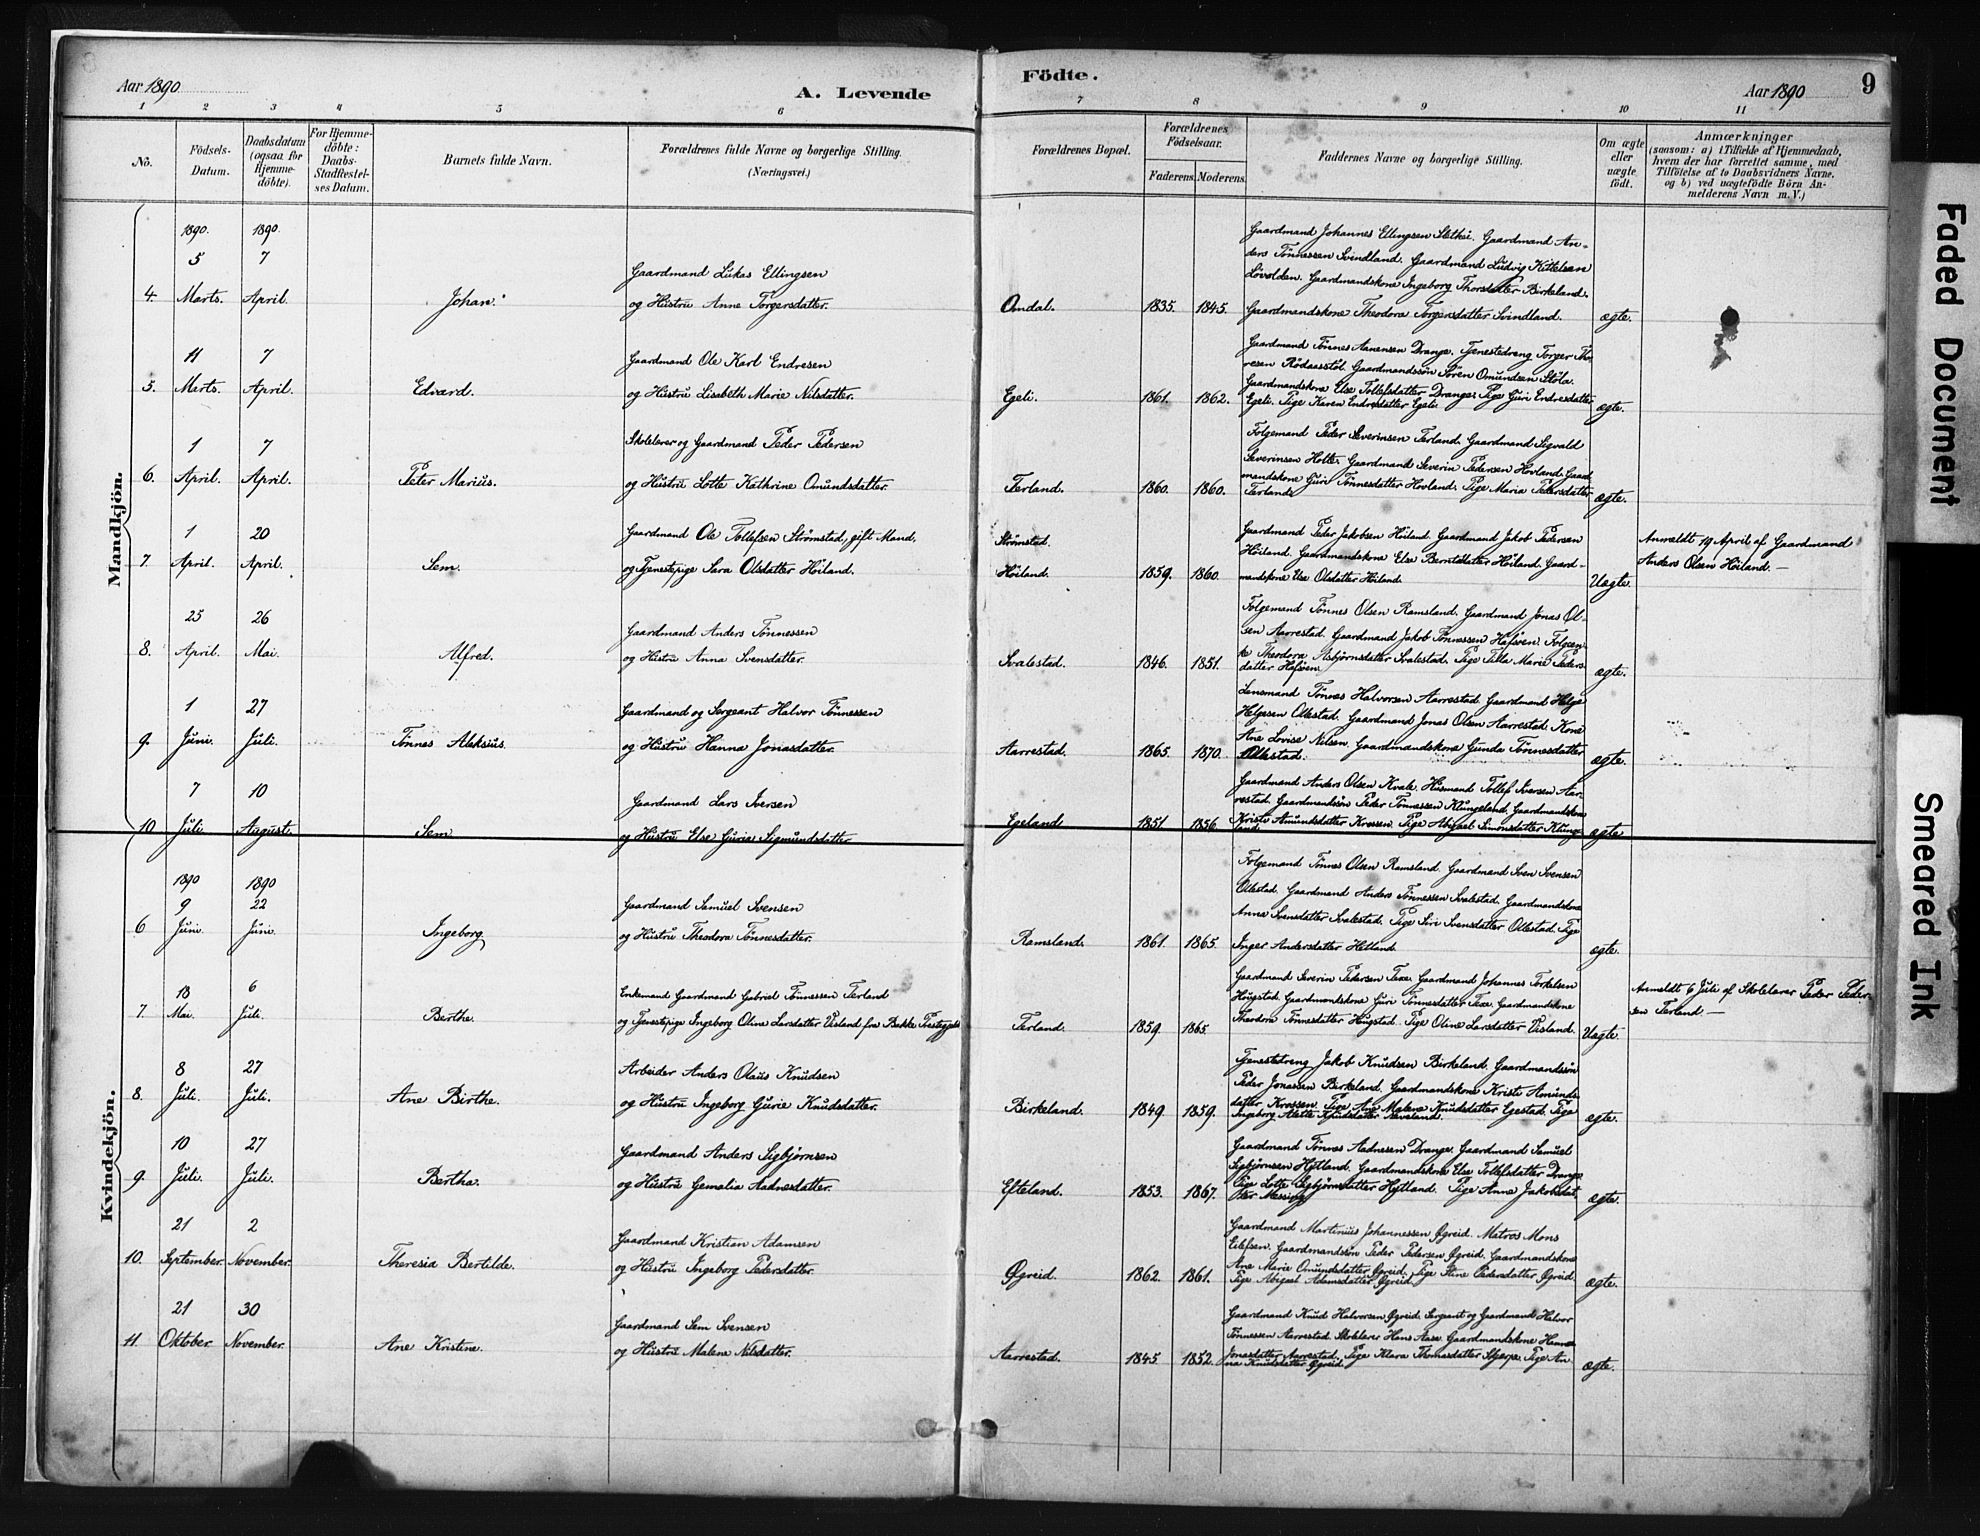 Aar 1890
A. Levende
Födte.
Aar 1890
9
1 2 3 4 5 6 7 8 9 10 11
No.
Födsels-Datum.
Daabsdatum (ogsaa for Hjemme-döbte).
For Hjemme-döbte: Daabs-Stadfestel-ses Datum.
Barnets fulde Navn.
Forældrenes fulde Navne og borgerlige Stilling. (Næringsvei.)
Forældrenes Bopæl.
Forældrenes Födselsaar.
Faderens. Moderens.
Faddernes Navne og borgerlige Stilling.
Om ægte eller uægte födt.
Anmærkninger
(saasom: a) i Tilfælde af Hjemmedaab, hvem der har forrettet samme, med Tilföielse af to Daabsvidners Navne, og b) ved uægtefödte Börn An-melderens Navn m. V.)
Mandkjön.
1890. 1890.
4. 5 Marts. 7 April. Johan.
Gaardmand Lukas Ellingsen
og Hustru Anne Torgersdatter.
Omdal. 1835. 1845.
Gaardmand Johannes Ellingsen Gaardmand An-
ders Tönnessen Svindland. Gaardmand Ludvig Kittelsen
Lövolden. Gaardmandskone Ingeborg Thorsdatter Birkeland.
Gaardmandskone Theodora Torgersdatter Svindland.
ægte.
5. 11 Marts. 7 April. Edvard.
Gaardmand Ole Karl Endresen
og Hustru Lisabeth Marie Nilsdatter.
Egeli. 1861. 1862.
Gaardmand Tönnes Aanensen Drange. Tjenestedreng Torger Tho-
resen Rödaasstöl. Gaardmandssön Sören Omundsen Stöla.
Gaardmandskone Else Tollefsdatter Drange. Pige Guri Endresdatter
Egeli. Pige Karen Endresdatter Egeli.
ægte.
6. 1 April. 7 April. Peter Marius.
Skolelærer og Gaardmand Peder Pedersen
og Hustru Lotte Kathrine Omundsdatter.
Ferland. 1860. 1860.
Folgemand Peder Severinsen Ferland. Gaardmand Sigvald
Severinsen Holte. Gaardmand Severin Pedersen Hovland. Gaard-
mandskone Guri Tönnesdatter Hovland. Pige Maria Pedersdatter
Ferland.
ægte.
7. 1 April. 20 April. Sem.
Gaardmand Ole Tollefsen Strömstad, gift Mand,
og Tjenestepige Sara Olsdatter Höiland.
Strömstad.
Höiland. 1859. 1860.
Gaardmand Peder Jakobsen Höiland. Gaardmand Jakob Pedersen
Höiland. Gaardmandskone Else Berntsdatter Höiland. Gaard-
mandskone Else Olsdatter Höiland.
Uægte.
Anmeldt 19 April af Gaardmand
Anders Olsen Höiland. —
8. 25 April. 26 Mai. Alfred.
Gaardmand Anders Tönnessen
og Hustru Anna Svensdatter.
Svalestad. 1846. 1851.
Folgemand Tönnes Olsen Ramsland. Gaardmand Jonas Ol-
sen Aarrestad. Gaardmand Jakob Tönnessen Hafsöen. Folgeen-
ke Theodora Asbjörnsdatter Svalestad. Pige Tilla Marie Peders-
datter Hafsöen.
ægte.
9. 1 Juni. 27 Juli. Tönnes Aleksius.
Gaardmand og Sergeant Halvor Tönnessen
og Hustru Hanna Jonasdatter.
Aarrestad. 1865. 1870.
Lensmand Tönnes Halvorsen Aarrestad. Gaardmand Helge
Helgesen Ollestad. Gaardmand Jonas Olsen Aarrestad. Kone
Ane Lovise Nilsen. Gaardmandskone Gunda Tönnesdatter
Ollestad.
ægte.
10. 7 Juli. 10 August. Sem
Gaardmand Lars Iversen
og Hustru Else Guria Sigmundsdatter
Egeland. 1851. 1856.
Gaardmand Anders Olsen Kvale. Husmand Tollef Iversen Aar-
restad. Gaardmandssön Peder Tönnessen Klungeland. Gaardmandskone
Kristi Amundsdatter Krossen. Pige Abigael Simonsdatter Klunge-
land.
ægte
Kvindekjön.
1890 1890
6 9 Juni. 22 Juni. Ingeborg
Gaardmand Samuel Svensen
og Hustru Theodora Tönnesdatter.
Ramsland. 1861. 1865.
Folgemand Tönnes Olsen Ramsland. Gaardmand Sven Svensen
Ollestad. Gaardmand Anders Tönnessen Svalestad. Gaardmandskone
Anna Svensdatter Svalestad. Pige Siri Svensdatter Ollestad. Pige
Inger Andersdatter Hetland.
ægte.
7 18 Mai. 6 Juli. Berthe.
Enkemand Gaardmand Gabriel Tönnessen Ferland
og Tjenestepige Ingeborg Oline Larsdatter Visland fra Bakke Prestegjeld
Ferland. 1859. 1865.
Gaardmand Severin Pedersen Texe. Gaardmand Johannes Torkelsen
Hugstad. Gaardmandskone Guri Tönnesdatter Texe. Gaardmandskone
Theodora Tönnesdatter Hugstad. Pige Oline Larsdatter Visland.
Uægte.
Anmeldt 6 Juli af Skolelærer Peder Peder-
sen Ferland —
8. 8 Juli. 27 Juli. Ane Birthe.
Arbeider Anders Olaus Knudsen
og Hustru Ingeborg Gurie Knudsdatter.
Birkeland. 1849. 1859.
Tjenestedreng Jakob Knudsen Birkeland. Gaardmandssön
Peder Jonassen Birkeland. Gaardmandskone Kristi Amunds-
datter Krossen. Pige Ane Malene Knudsdatter Egestad. Pige
Ingeborg Alette Knudsdatter
ægte.
9. 10 Juli. 27 Juli. Bertha.
Gaardmand Anders Sigbjörnsen
og Hustru Gemalia Aadnesdatter.
Efteland. 1853. 1867.
Gaardmand Tönnes Aadnesen Drange. Gaardmand Samuel
Sigbjörnsen Hytland. Gaardmandskone Else Tollefsdatter Drange.
Pige Lotte Sigbjörnsdatter Hytland. Pige Anne Jakobsdat-
ter Messing.
ægte.
10. 21 September. 2 November. Theresia Bertilde.
Gaardmand Kristian Adamsen
og Hustru Ingeborg Pedersdatter.
Øgreid. 1862. 1861.
Gaardmand Martinius Johannessen Øgreid. Matros Mons
Eilefsen. Gaardmandssön Peder Pedersen Øgreid. Gaardmandskone
Ane Marie Omundsdatter Øgreid. Pige Stine Pedersdatter Øgreid.
Pige Abigael Adamsdatter Øgreid.
ægte.
11. 21 Oktober. 30 November. Ane Kristine.
Gaardmand Sem Svensen
og Hustru Malene Nilsdatter.
Aarrestad. 1845. 1852.
Gaardmand Knud Halvorsen Øgreid. Sergeant og Gardmand Halvor
Tönnessen Aarrestad. Skolelærer Hans Aase. Gaardmandskone Hanna
Jonasdatter Aarrestad. Pige Klara Thomasdatter Skjerpe. Pige An-
na Knudsdatter Øgreid.
ægte.
Faded Document
Smeared Ink